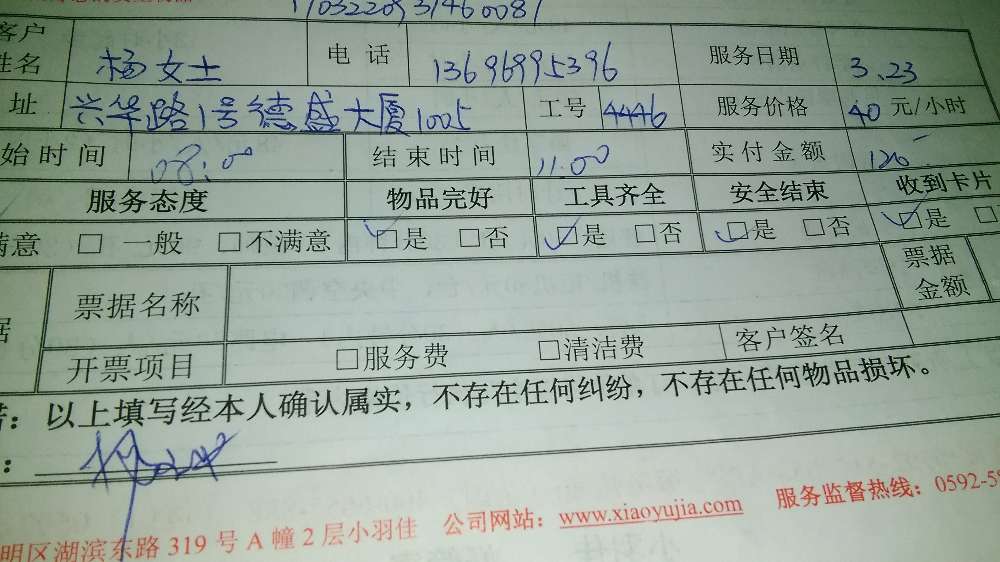 17032209314600817
客户姓名 杨女士 电话 13696995396 服务日期 3.23
址 兴华路1号德盛大厦1005 工号 4446 服务价格 40元/小时
始时间 08:00 结束时间 11:00 实付金额 120
服务态度 物品完好 工具齐全 安全结束 收到卡片
满意 □ 一般 □不满意 □是 □否 □是 □否 □是 □否 □是 □
据 票据名称 票据金额
开票项目 □服务费 □清洁费 客户签名
诺：以上填写经本人确认属实，不存在任何纠纷，不存在任何物品损坏。
：
明区湖滨东路 319 号 A 幢 2 层小羽佳 公司网站：www.xiaoyujia.com 服务监督热线：0592-58